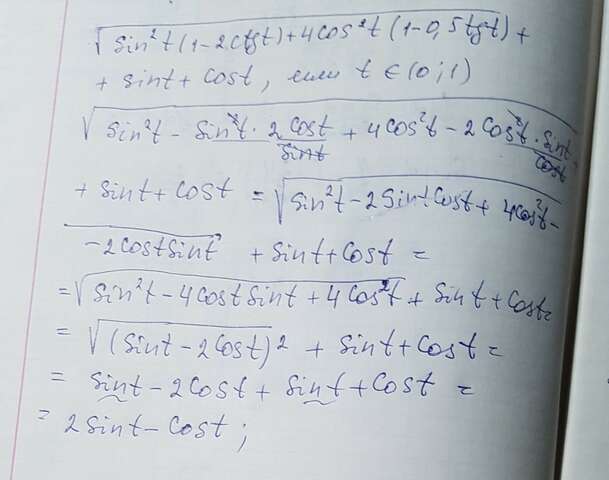 √(sin²t(1-2ctgt)+4cos²t(1-0,5tgt)) +
+ sint + cost, если t ∈ (0;1)
√(sin²t - sin²t · 2cost/sint + 4cos²t - 2cos²t · sint/cost
+ sint + cost = √(sin²t - 2sintcost + 4cos²t -
- 2costsint) + sint + cost =
= √(sin²t - 4costsint + 4cos²t) + sint + cost =
= √(sint - 2cost)² + sint + cost =
= sint - 2cost + sint + cost =
= 2sint - cost;